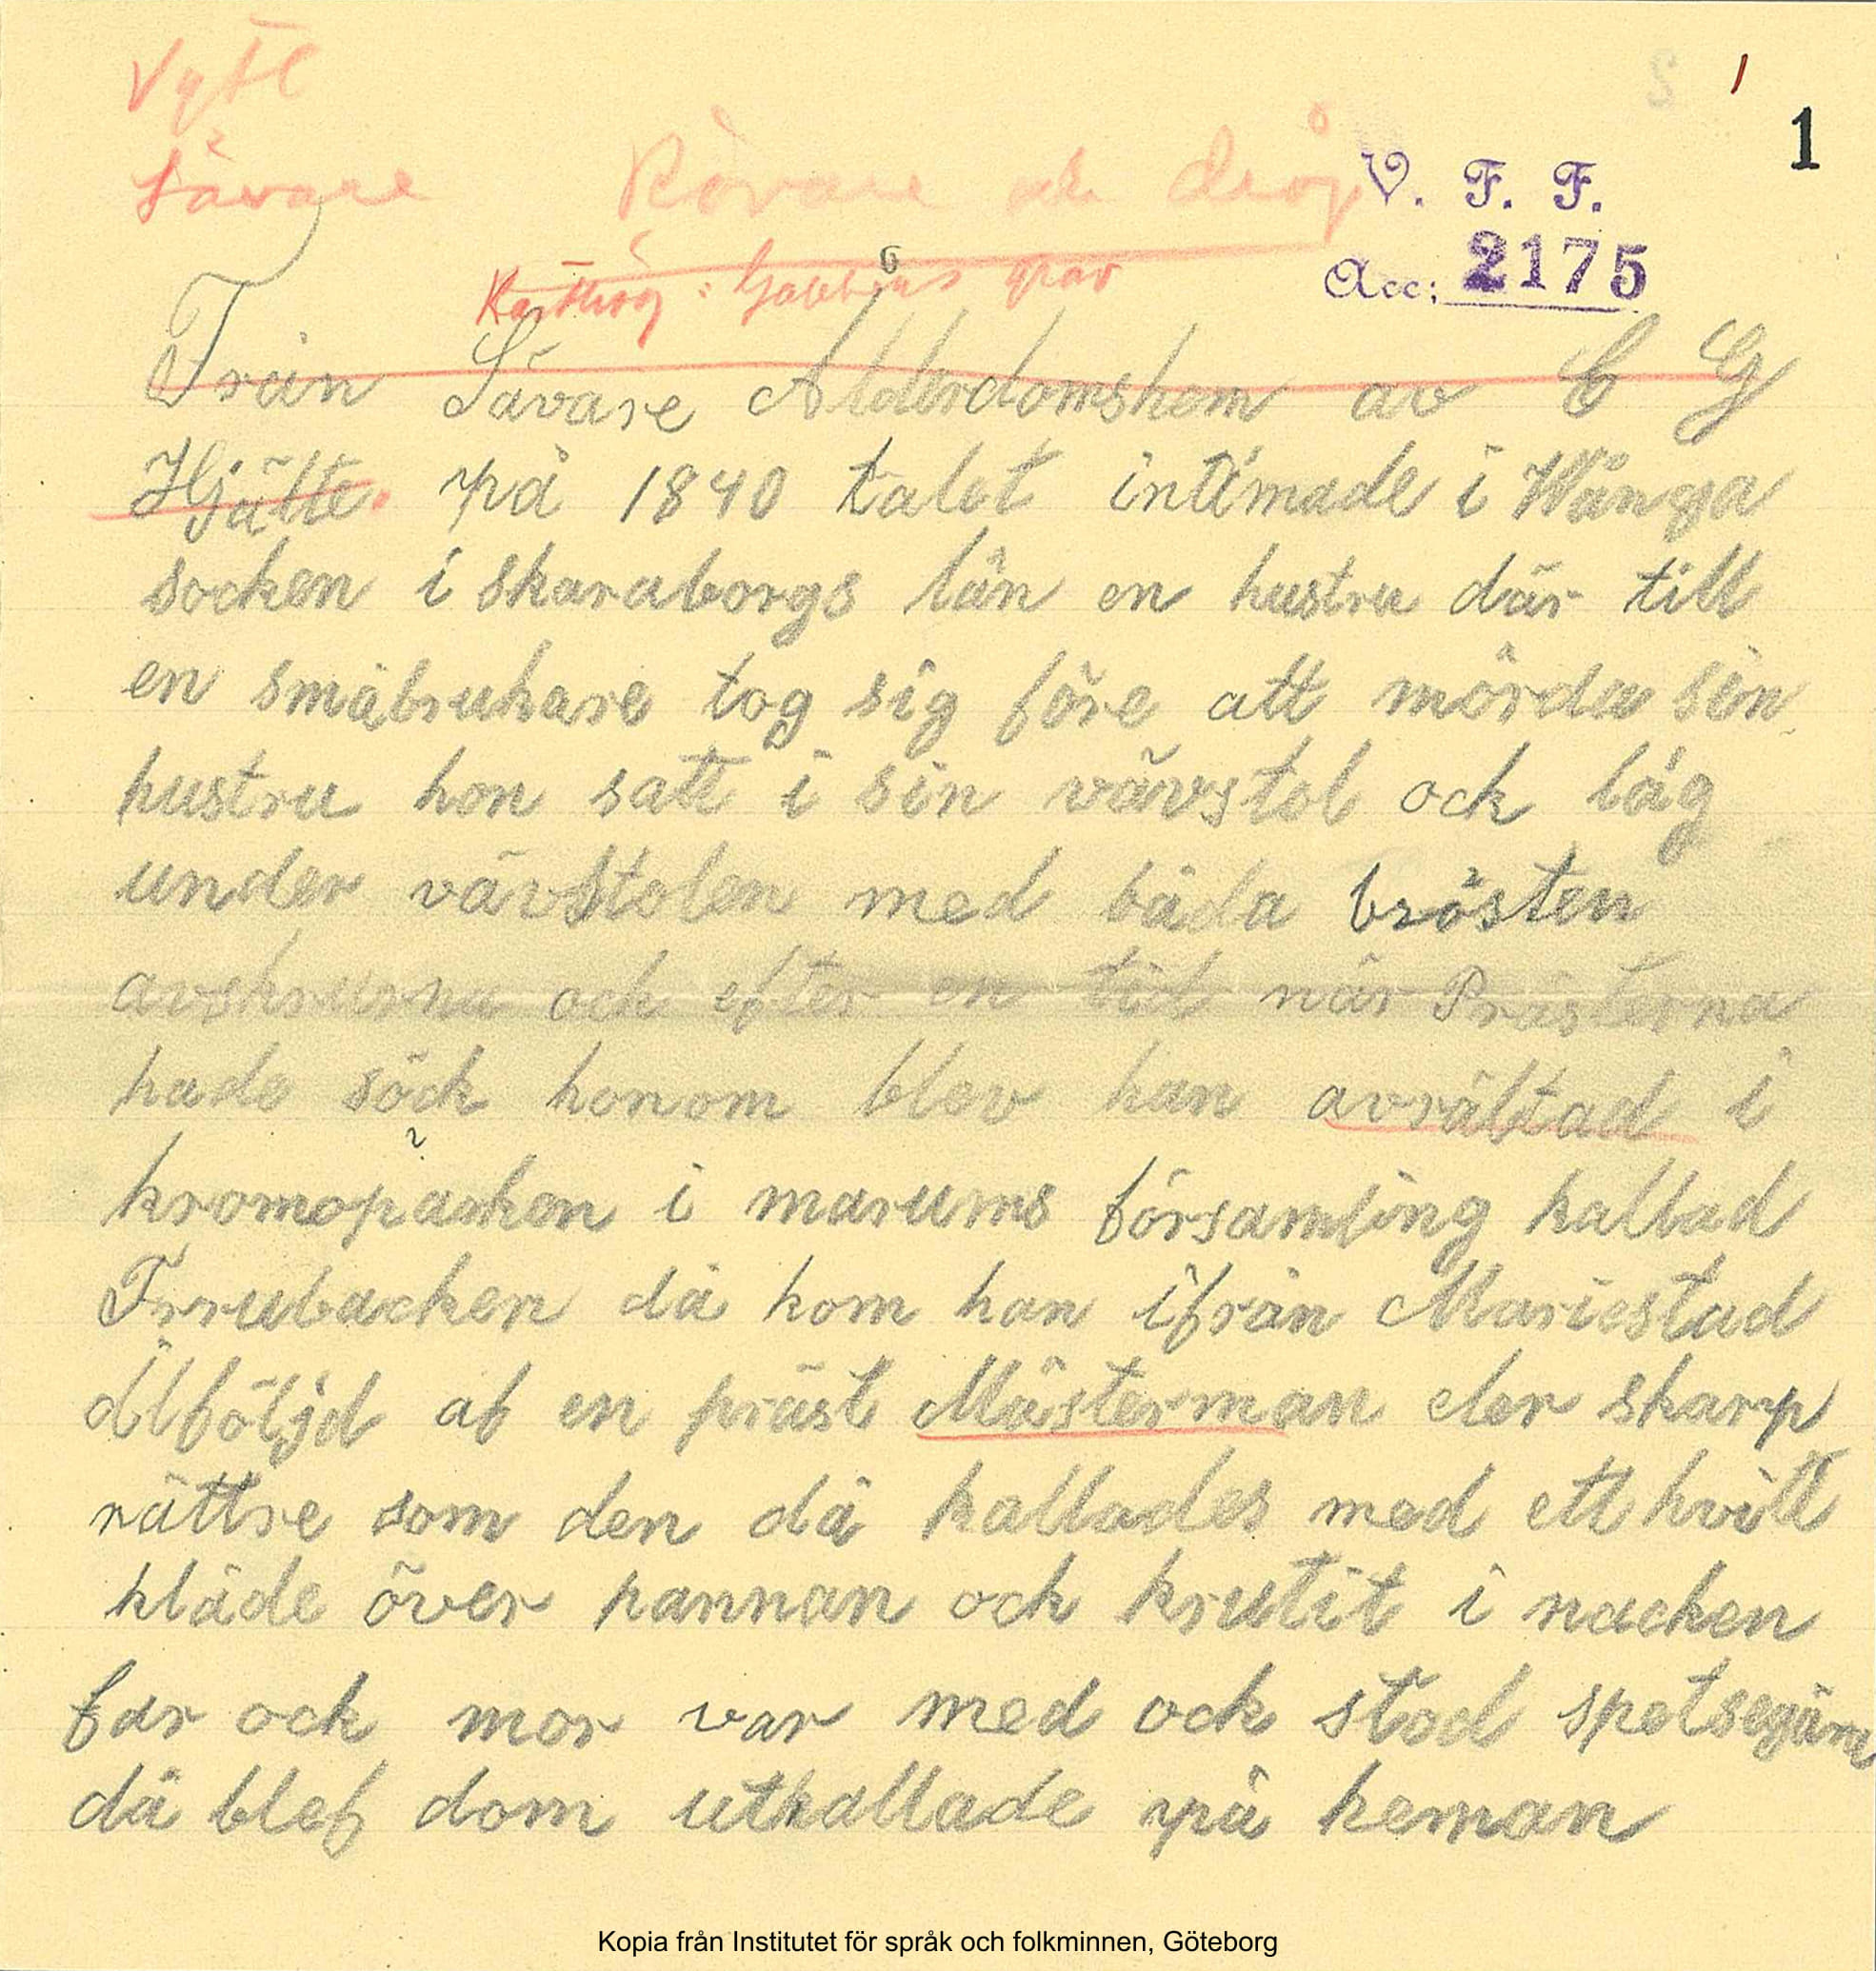 Vgtl
1
Sävare Rövare och dråp
V. F. F.
Acc: 2175
Kärthög: Gabbens grav
Från Sävare Ålderdomshem av C G
Hjälte. på 1840 talet intimade i Wånga
socken i skaraborgs län en hustru där till
en småbrukare tog sig före att mörda sin
hustru hon satt i sin vävstol ock låg
under vävstolen med båda brösten
avskurna ock efter en tid när Prästerna
hade söck honom blev han avrältad i
kromoparken i marums församling kallad
Frrubacken då kom han ifrån Mariestad
ålföljd af en präst Mästerman eler skarp
rättre som den då kallades med ett hvitt
kläde över pannan ock krutit i nacken
far ock mor var med ock stod spetsegårn
då blef dom utkallade på heman
Kopia från Institutet för språk och folkminnen, Göteborg